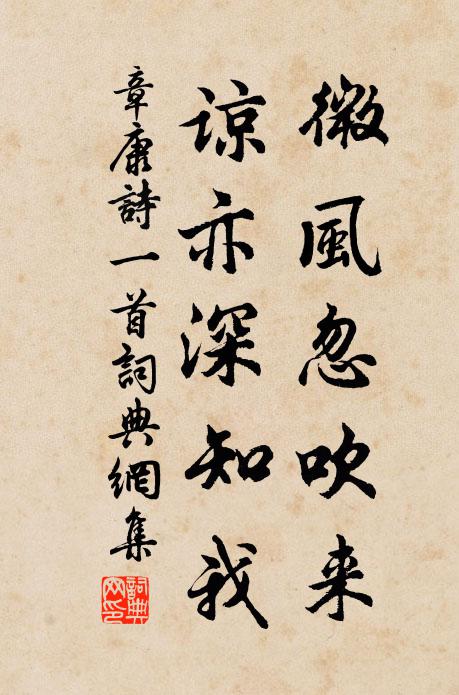 微風忽吹来
諒亦深知我
章康詩一首詞典網集
詞典网印